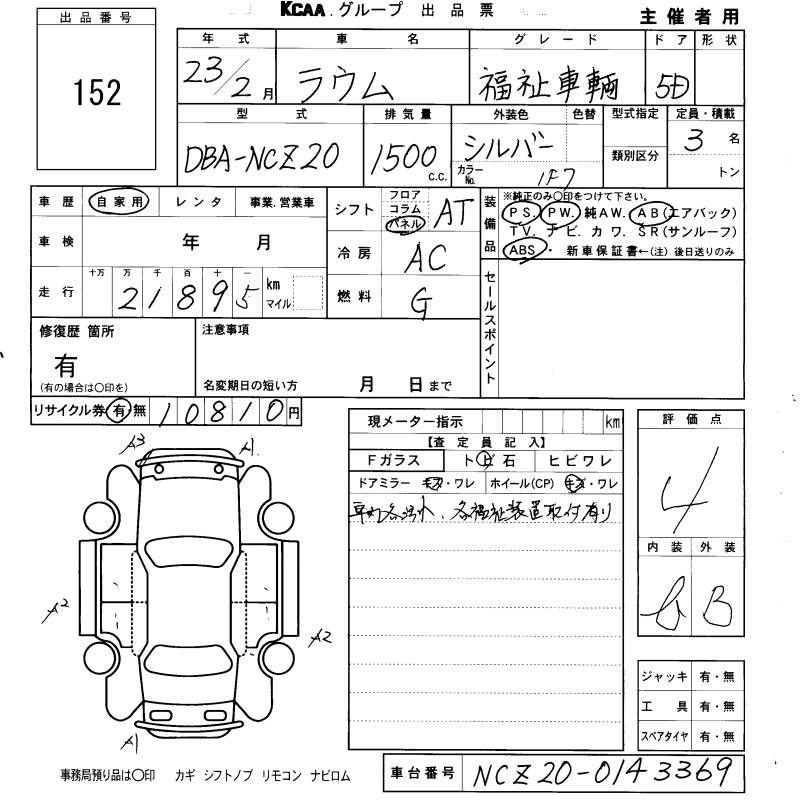 KCAA.グループ 出品票
主催者用
出品番号
152
年式 車名 グレード ドア 形状
23/2月 ラウム 福祉車輌 5D
型式 排気量 外装色 色替 型式指定 定員・積載
DBA-NCZ20 1500c.c. シルバー カラーNo. 1F7 類別区分 3名
トン
車歴 自家用 レンタ 事業.営業車
シフト フロア コラム パネル AT
装備品 ※純正のみ〇印をつけて下さい。
PS. PW. 純AW. AB(エアバック)
TV. ナビ. カワ. SR(サンルーフ)
ABS・新車保証書←(注)後日送りのみ
車検 年 月
冷房 AC
走行 十万 万 千 百 十 一
21895 km マイル
燃料 G
セールスポイント
修復歴 箇所
有
(有の場合は〇印を)
注意事項
名変期日の短い方 月 日まで
リサイクル券 有 無 10810円
現メーター指示 km
【査定員記入】
Fガラス トビ石 ヒビワレ
ドアミラー キズ・ワレ ホイール(CP) キズ・ワレ
各福祉装置取付有り
評価点
4
内装 外装
B
A3 A1
A2
A2
A1
ジャッキ 有・無
工具 有・無
スペアタイヤ 有・無
事務局預り品は〇印 カギ シフトノブ リモコン ナビロム
車台番号 NCZ20-0143369